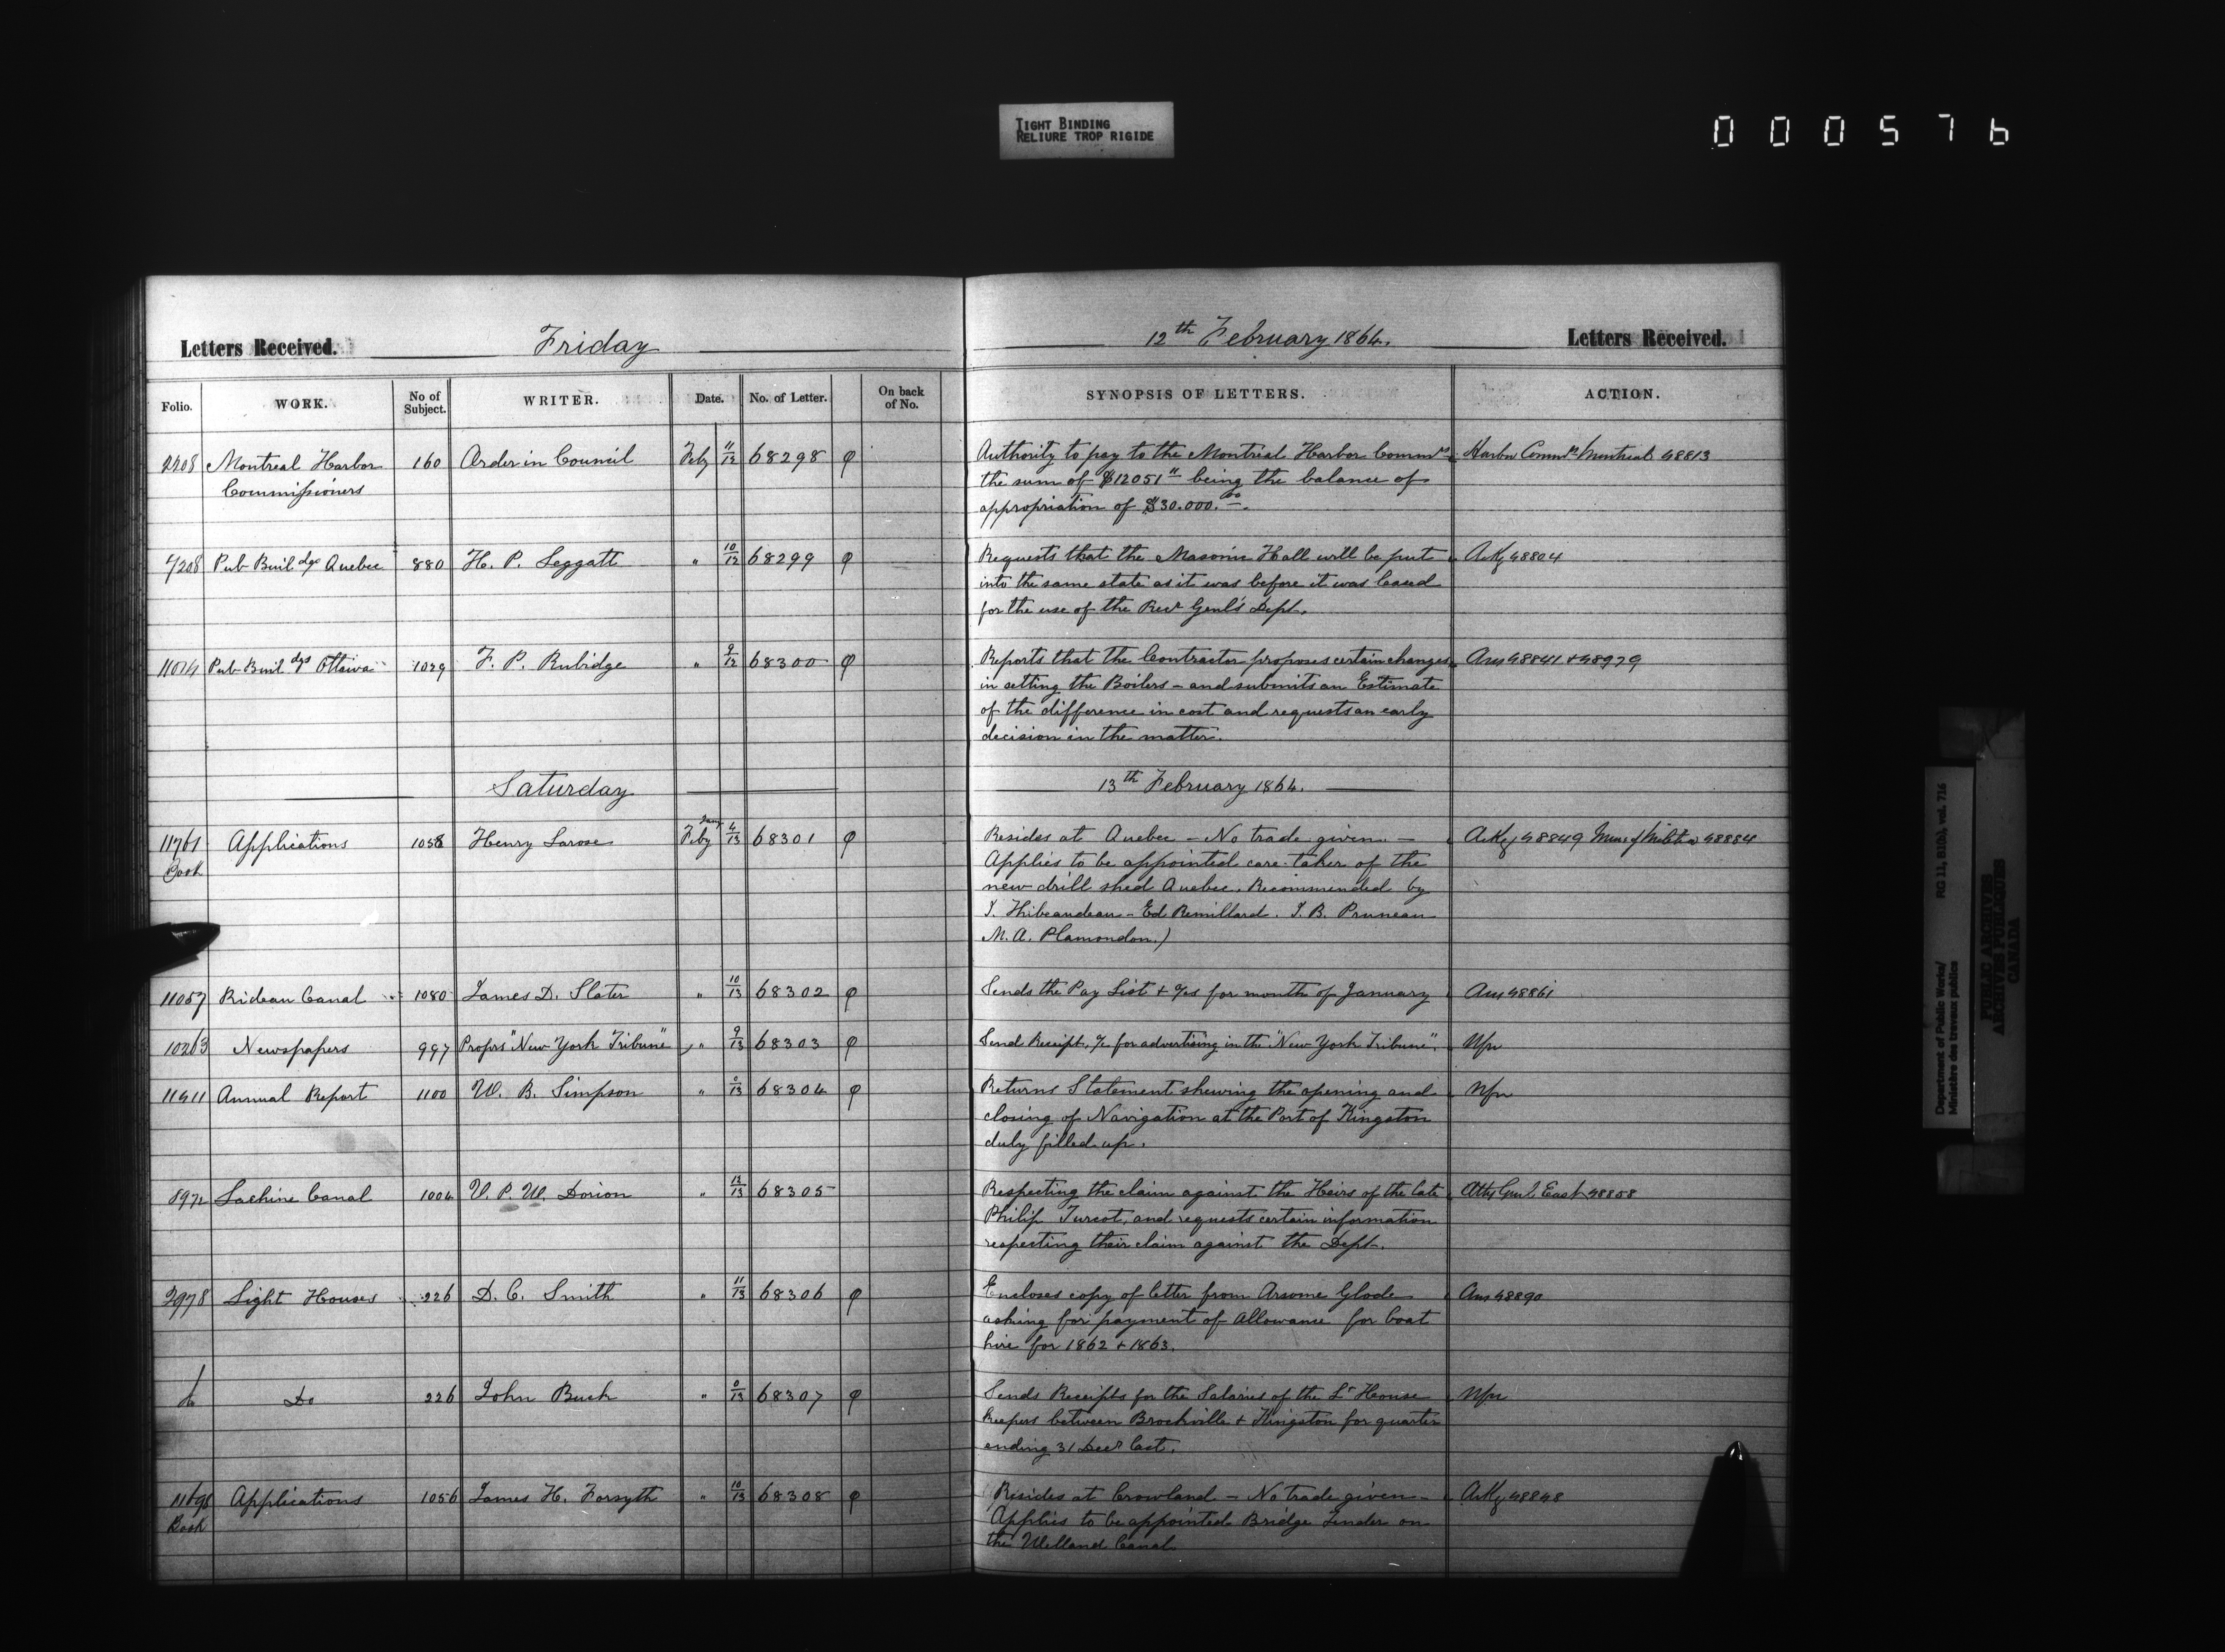 TIGHT BINDING
RELIURE TROP RIGIDE
000576
Letters Received. Friday 12th February 1864. Letters Received.
Folio. WORK. No of Subject. WRITER. Date. No. of Letter. On back of No. SYNOPSIS OF LETTERS. ACTION.
2208 Montreal Harbor 160 Order in Council Feby 11/12 68298 Authority to pay to the Montreal Harbor Commrs Harbor Commrs Montreal 48813
Commissioners the sum of $12051 11 being the balance of
appropriation of $30.000.00.
7208 Pub Buildgs Quebec 880 H. P. Leggatt " 10/12 68299 Requests that the Masonic Hall will be put Ackg 48804
into the same state as it was before it was leased
for the use of the Recr Genl's Dept.
11014 Pub Buildgs Ottawa 1029 F. P. Rubidge " 9/12 68300 Reports that the Contractor proposes certain changes Ans 48841 + 48979
in setting the Boilers - and submits an Estimate
of the difference in cost and requests an early
decision in the matter.
Saturday 13th February 1864.
11761 Applications 1058 Henry Larose Feby Jany 4/13 68301 Resides at Quebec - No trade given - Ackg 48849 48884
Book Applies to be appointed care-taker of the
new drill shed Quebec. Recommended by
I. Thibeaudeau - Ed Remillard. J. B. Pruneau
M. A. Plamondon.)
11057 Rideau Canal 1080 James D. Slater " 10/13 68302 Sends the Pay List + a/cs for month of January Ans 48861
10263 Newspapers 997 Proprs "New York Tribune" " 9/13 68303 Send Receipt, a/c for advertising in the "New York Tribune". Nfn
11411 Annual Report 1100 W. B. Simpson " 0/13 68304 Returns Statement shewing the opening and Nfn
closing of Navigation at the Port of Kingston
duly filled up.
8972 Lachine Canal 1004 V. P. W. Dorion " 12/13 68305 Respecting the claim against the Heirs of the late Atty Genl East 48858
Philip Turcot, and requests certain information
respecting their claim against the Dept.
2978 Light Houses 226 D. C. Smith " 11/13 68306 Encloses copy of letter from Arsome Glode Ans 48890
asking for payment of Allowance for boat
hire for 1862 + 1863.
do Do 226 John Buck " 0/13 68307 Sends Receipts for the Salaries of the Lt House Nfn
Keepers between Brockville + Kingston for quarter
ending 31 Decr last.
11698 Applications 1056 James H. Forsyth " 10/13 68308 Resides at Crowland - No trade given - Ackg 48848
Book Applies to be appointed Bridge Tender on
the Welland Canal
Department of Public Works/ RG 11, B1(b), vol. 716
Ministère des travaux publics
PUBLIC ARCHIVES
ARCHIVES PUBLIQUES
CANADA